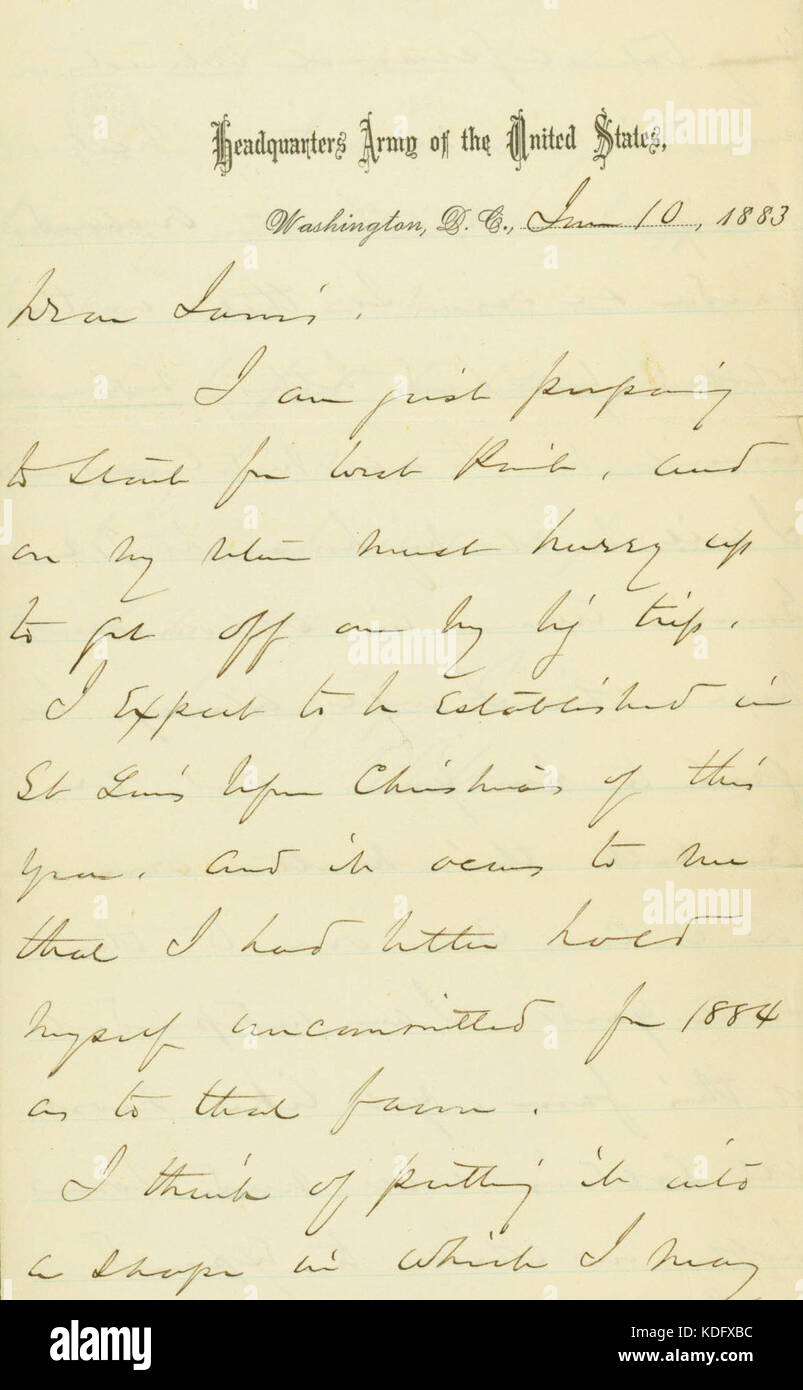 Headquarters Army of the United States,
Washington, D. C., June 10, 1883
Dear
I am just preparing
to start for West Point, and
on my return must hurry up
to get off on my big trip.
I Expect to be Established in
St Louis before Christmas of this
year. and it occurs to me
that I had better hold
myself uncommitted for 1884
as to that farm.
I think of putting it into
a shape in which I may
alamy
a
alamy stock photo
KDFXBC
www.alamy.com